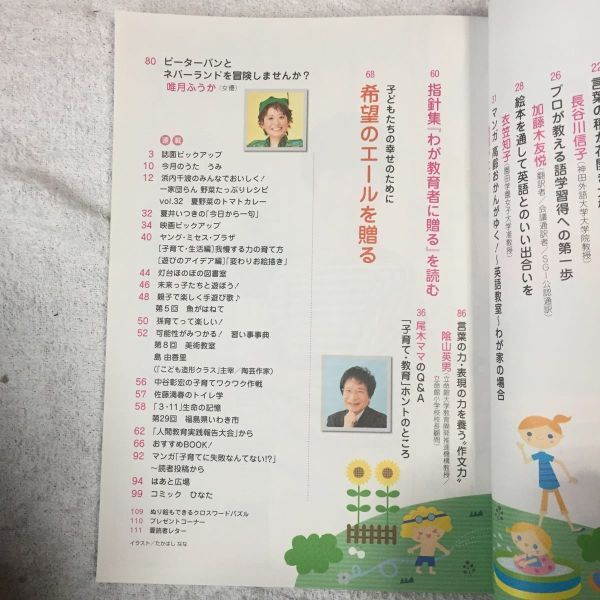 22
言葉の種が花開
長谷川信子(神田外語大学大学院教授)
26
プロが教える語学習得への第一歩
加藤木友悦(翻訳者/会議通訳者/SGI公認通訳)
28
絵本を通して英語とのいい出合いを
衣笠知子(園田学園女子大学准教授)
31
マンガ 高齢おかんがゆく!〜英語教室〜わが家の場合
86
言葉の力・表現の力を養う“作文力”
陰山英男(立命館大学教育開発推進機構教授/立命館小学校校長顧問)
36
尾木ママのQ&A
「子育て・教育」ホントのところ
60
指針集『わが教育者に贈る』を読む
子どもたちの幸せのために
68
希望のエールを贈る
80 ピーターパンと
ネバーランドを冒険しませんか?
唯月ふうか(女優)
連載
3 誌面ピックアップ
10 今月のうた うみ
12 浜内千波のみんなでおいしく!
一家団らん 野菜たっぷりレシピ
vol.32 夏野菜のトマトカレー
32 夏井いつきの「今日から一句」
34 映画ピックアップ
40 ヤング・ミセス・プラザ
[子育て・生活編]我慢する力の育て方
[遊びのアイデア編]「変わりお絵描き」
44 灯台ほのぼの図書室
46 未来っ子たちと遊ぼう!
48 親子で楽しく手遊び歌♪
第5回 魚がはねて
50 孫育てって楽しい!
52 可能性がみつかる! 習い事事典
第8回 美術教室
島 由香里
(「こども造形クラス」主宰/陶芸作家)
56 中谷彰宏の子育てワクワク作戦
57 佐藤満春のトイレ学
58 「3・11」生命の記憶
第29回 福島県いわき市
62 「人間教育実践報告大会」から
66 おすすめBOOK!
92 マンガ「子育てに失敗なんてない!?」
〜読者投稿から
94 はあと広場
99 コミック ひなた
109 ぬり絵もできるクロスワードパズル
110 プレゼントコーナー
111 愛読者レター
イラスト/たかはし なな